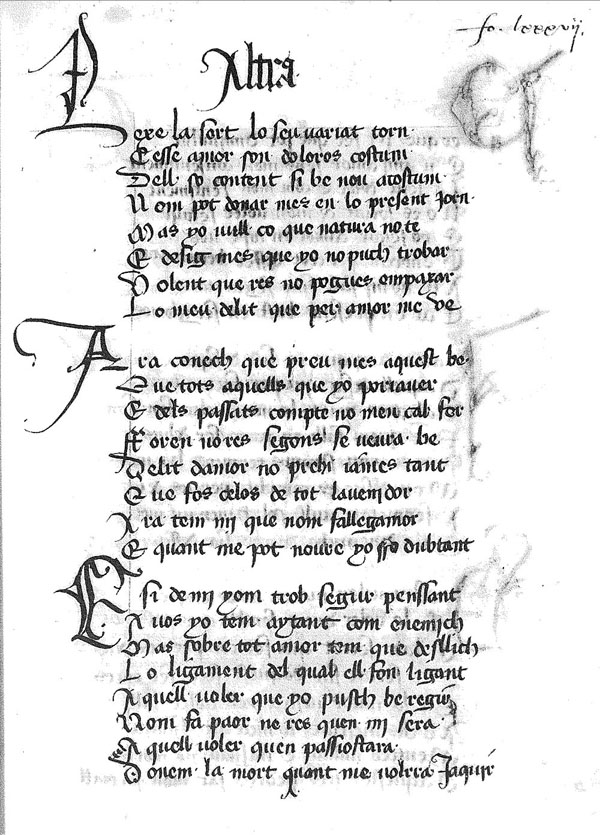 fo. lxxxvij.
Altra
Lexe la sort lo seu variat torn
E esse amor son doloros costum
Dell so content si be nou acostum
Nom pot donar mes en lo present jorn
Mas yo vull ço que natura note
E desig mes que yo no puch trobar
Dolent que res no pogues empaxar
Lo meu delit que per amor me ve
Ara conech que preu mes aquest be
Que tots aquells que yo portaver
E dels passats compte no men cal fer
Foren no res segons se veura be
Delit damor no prehi iames tant
Que fos celos de tot lavenidor
Ara tem mi que nom fallegamor
E quant me pot noure yo so dubtant
E si de mi yom trob segur penssant
A vos yo tem aytant com enemich
Mas sobre tot amor tem que desllich
Lo ligament del qual ell fon ligant
Aquell voler que yo pusch be regir
Nom fa paor ne res quen mi sera
Aquell voler quen passio stara
Donem la mort quant me volrra jaquir